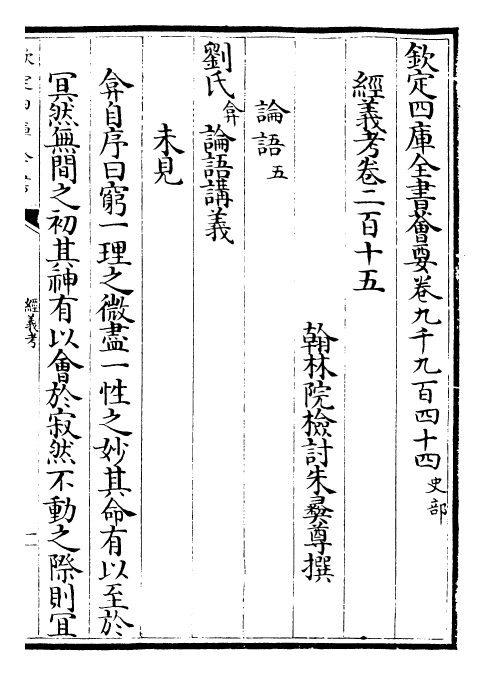 欽定四庫全書薈要卷九千九百四十四 史部
經義考卷二百十五
翰林院檢討朱彝尊撰
論語 五
劉氏 弇 論語講義
未見
弇自序曰窮一理之微盡一性之妙其命有以至於
冥然無間之初其神有以會於寂然不動之際則宜
經義考
一